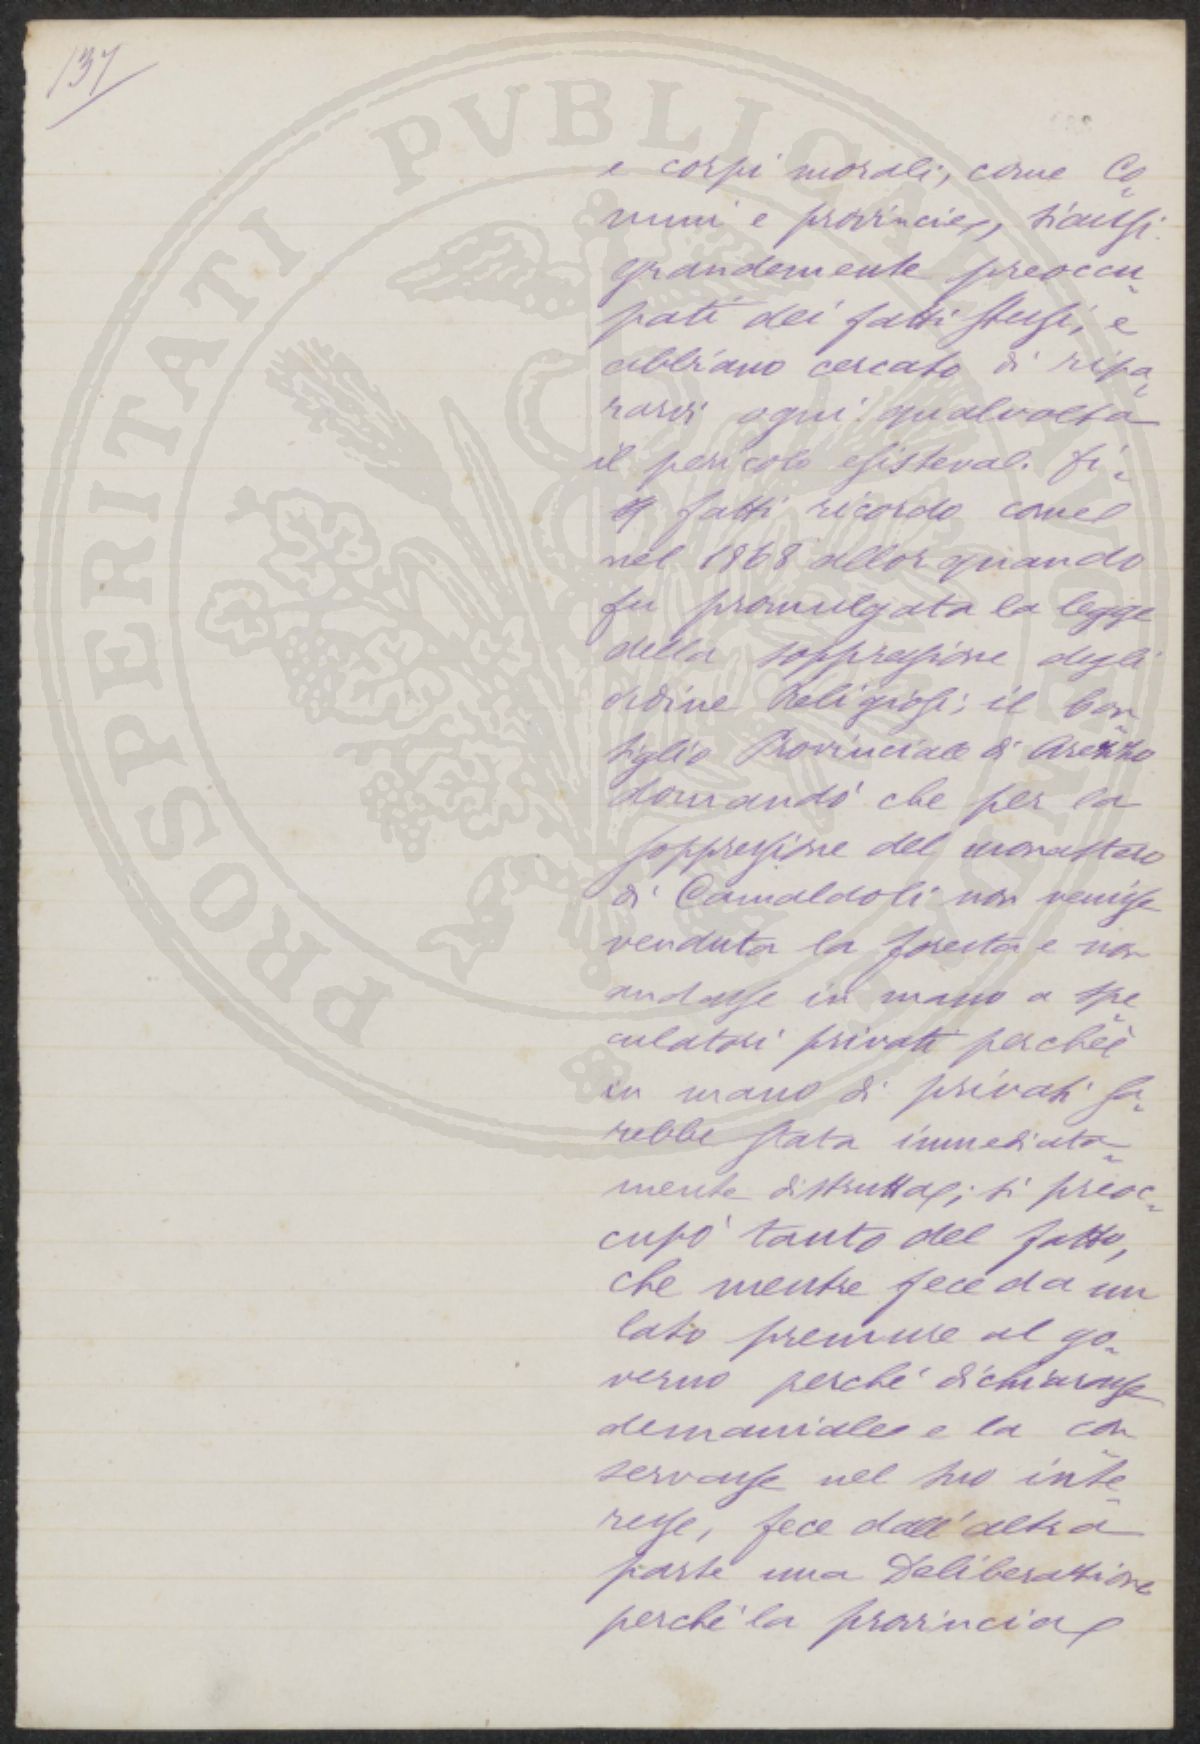 137
PROSPERITATI PVBLICAE
e corpi morali, come Co-
muni e provincie, siansi
grandemente preoccu-
pati dei fatti stessi, e
abbiano cercato di ripa-
rarvi ogni qualvolta
il pericolo esisteva. In-
fatti ricordo come
nel 1868 allorquando
fu promulgata la legge
della soppressione degli
ordine Religiosi; il Con-
siglio Provinciale di Arezzo
domandò che per la
soppressione del monastero
di Camaldoli non venisse
venduta la foresta e non
andasse in mano a spe-
culatori privati perchè
in mano di privati sa-
rebbe stata immediata-
mente distrutta; si preoc-
cupò tanto del fatto,
che mentre fece da un
lato premure al go-
verno perché dichiarasse
demaniale e la con-
servasse nel suo inte-
resse, fece dall'altra
parte una Deliberazione
perché la provincia